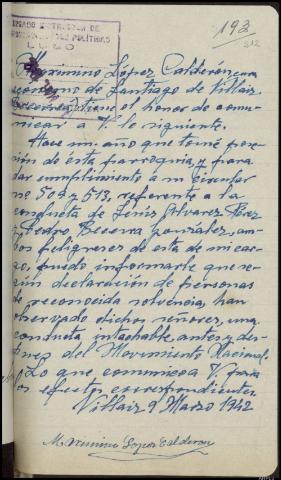 193
312
JUZGADO INSTRUCTOR DE
RESPONSABILIDADES POLITICAS
LUGO
Maximino López Calderón, cura
ecónomo de Santiago de Villaiz
Becerreá, tiene el honor de comu-
nicar a V. lo siguiente.
Hace un año que tomé pose-
sión de esta parroquia, y para
dar cumplimiento a su circular
nº 507 y 513, referente a la
conducta de Jenús Alvarez Pérez
y Pedro Becerra González, am-
bos feligreses de esta de mi car-
go, puedo informarle que se-
gún declaración de personas
de reconocida solvencia, han
observado dichos señores, una
conducta intachable, antes y des-
pues del Movimiento Nacional.
Lo que comunico a V. para
los efectos correspondientes.
Villaiz 9 Marzo 1942
Maximino Lopez Calderon